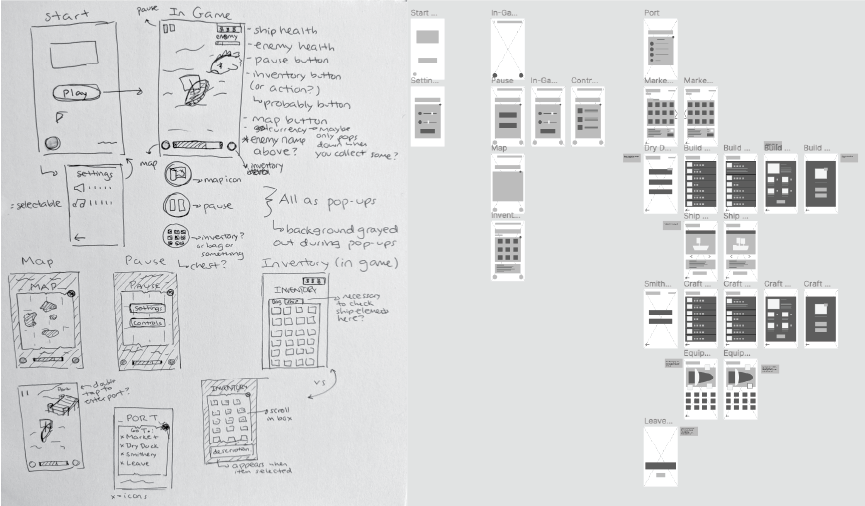 start
pause
In Game
ship health
enemy
enemy health
pause button
inventory button
(or action?)
probably button
map button
currency → maybe
only pops
down when
you collect some?
*enemy name
above?
Play
map
inventory
Settings
= selectable
map icon
pause
inventory?
or bag or
something
chest?
All as pop-ups
background grayed
out during pop-ups
Map
Pause
Inventory (in game)
MAP
PAUSE
Settings
Controls
INVENTORY
necessary
to check
ship elements
here?
vs
double
tap to
enter port?
PORT
Go To:
x Market
x Dry Dock
x Smithery
x Leave
x = icons
INVENTORY
scroll
in box
description
appears when
item selected
Start ...
In-Ga...
Port
Settin...
Pause
In-Ga...
Contr...
Marke...
Marke...
Map
Dry D...
Build ...
Build ...
Build ...
Build ...
Invent...
Ship ...
Ship ...
Smith...
Craft ...
Craft ...
Craft ...
Craft ...
Equip...
Equip...
Leave...